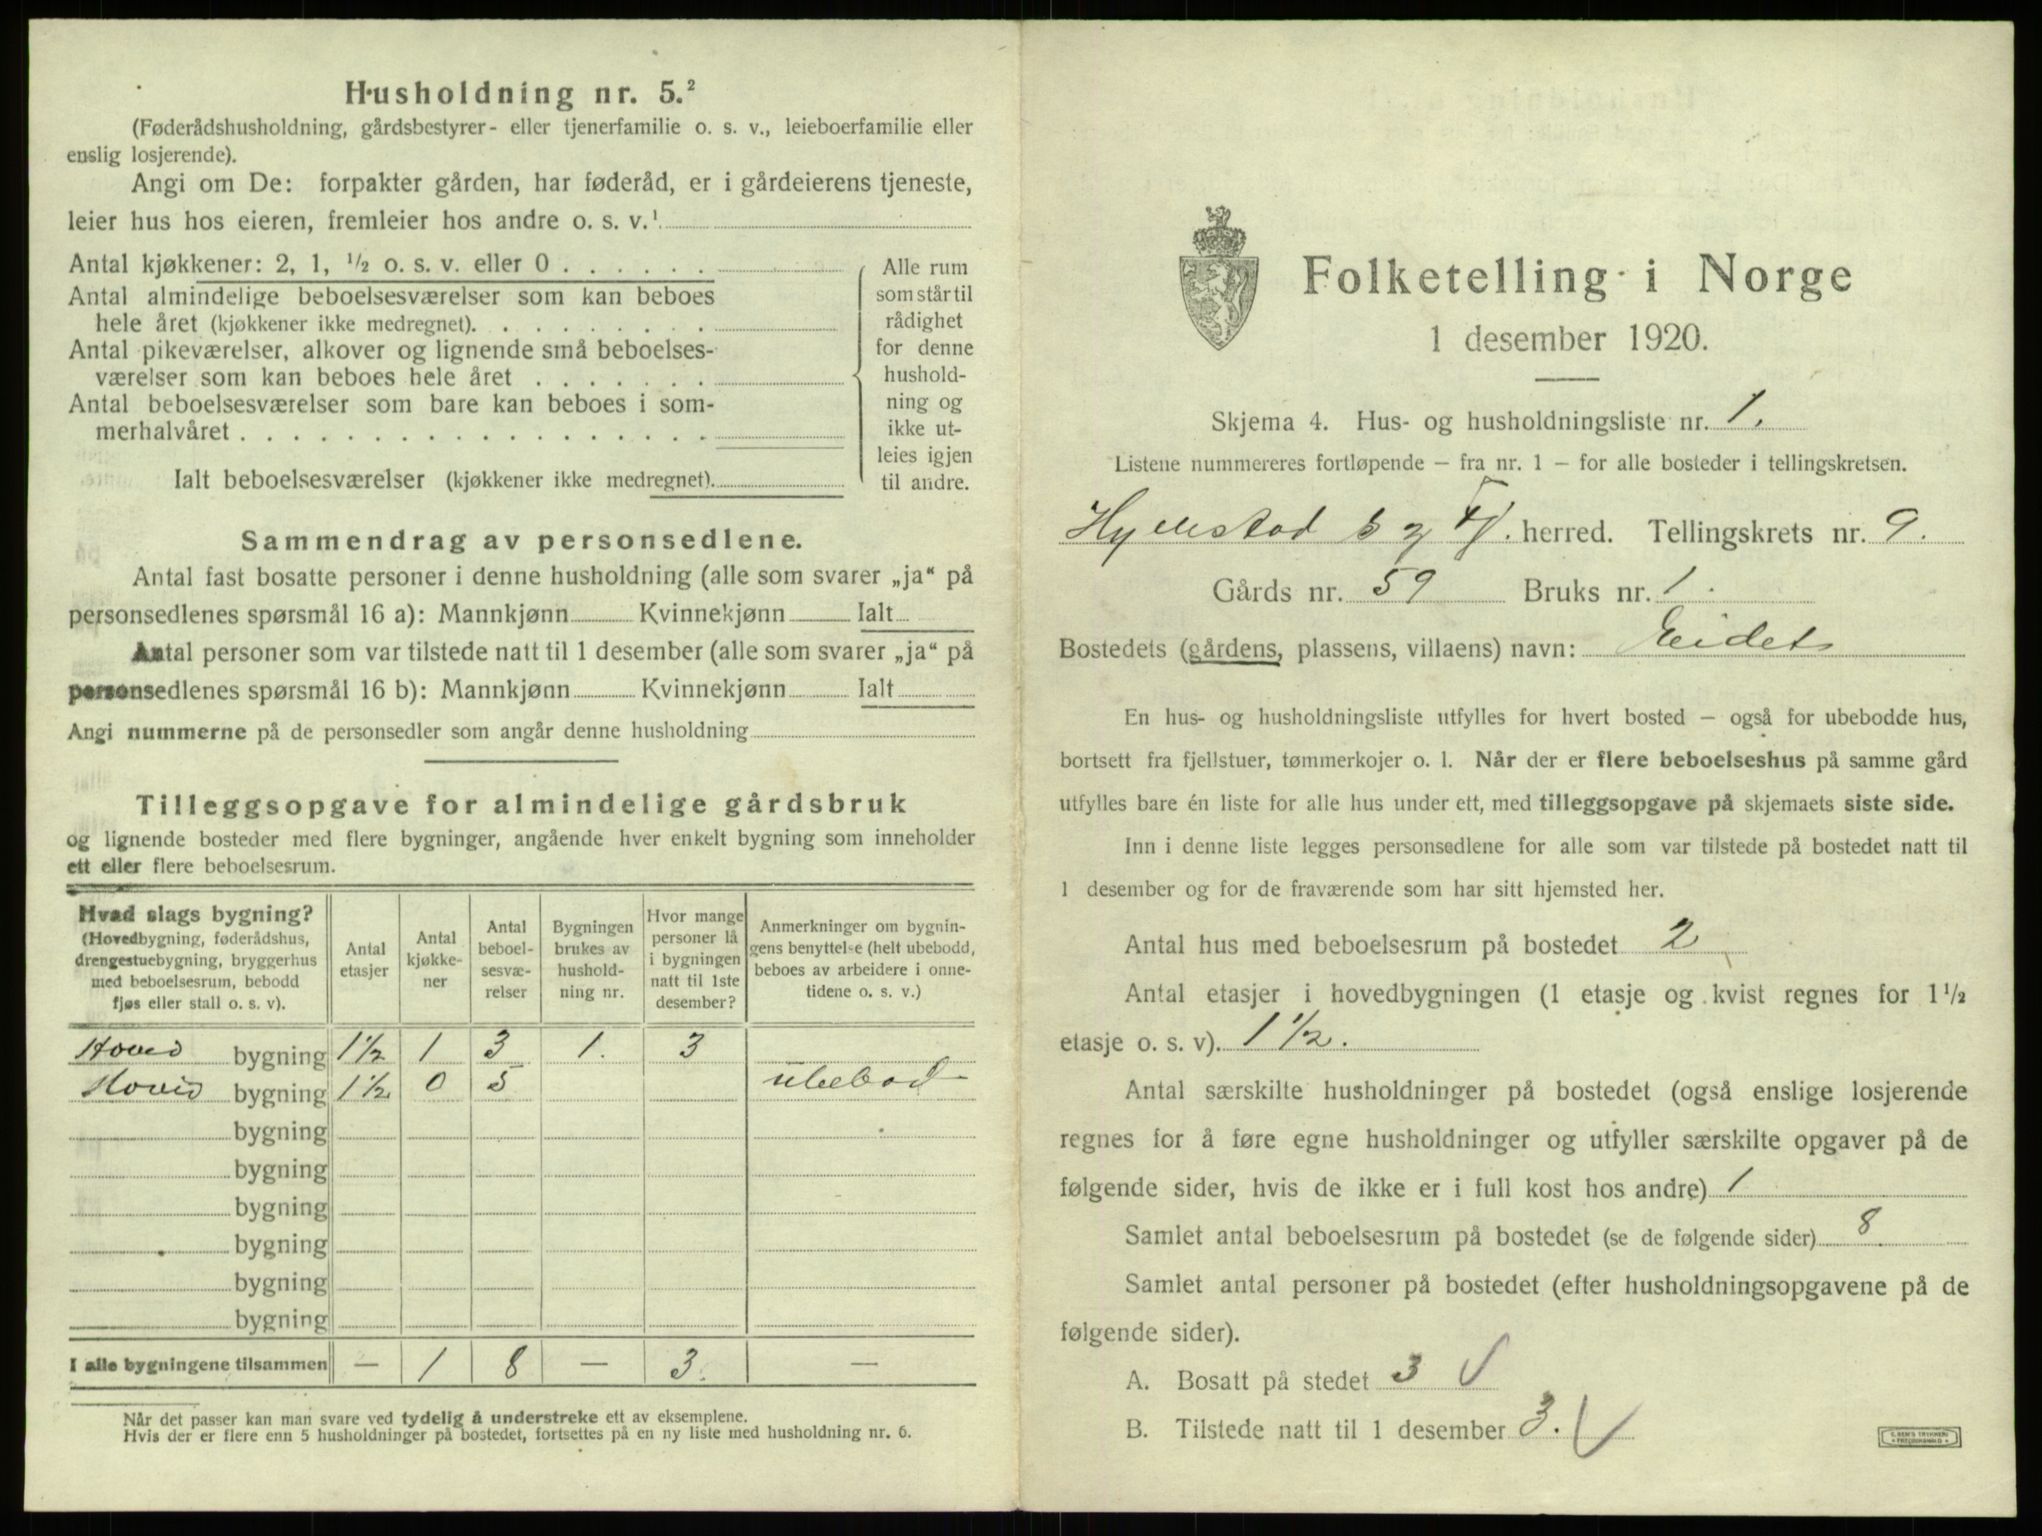 Husholdning nr. 5.²
(Føderådshusholdning, gårdsbestyrer- eller tjenerfamilie o. s. v., leieboerfamilie eller
enslig losjerende).
Angi om De: forpakter gården, har føderåd, er i gårdeierens tjeneste,
leier hus hos eieren, fremleier hos andre o. s. v.¹
Antal kjøkkener: 2, 1, ½ o. s. v. eller 0
Antal almindelige beboelsesværelser som kan beboes
hele året (kjøkkener ikke medregnet).
Antal pikeværelser, alkover og lignende små beboelses-
værelser som kan beboes hele året
Antal beboelsesværelser som bare kan beboes i som-
merhalvåret
Ialt beboelsesværelser (kjøkkener ikke medregnet).
Alle rum
som står til
rådighet
for denne
hushold-
ning og
ikke ut-
leies igjen
til andre.
Sammendrag av personsedlene.
Antal fast bosatte personer i denne husholdning (alle som svarer „ja“ på
personsedlenes spørsmål 16 a): Mannkjønn Kvinnekjønn Ialt
Antal personer som var tilstede natt til 1 desember (alle som svarer „ja“ på
personsedlenes spørsmål 16 b): Mannkjønn Kvinnekjønn Ialt
Angi nummerne på de personsedler som angår denne husholdning
Tilleggsopgave for almindelige gårdsbruk
og lignende bosteder med flere bygninger, angående hver enkelt bygning som inneholder
ett eller flere beboelsesrum.
Hvad slags bygning?
(Hovedbygning, føderådshus,
drengestuebygning, bryggerhus
med beboelsesrum, bebodd
fjøs eller stall o. s. v).
Antal
etasjer
Antal
kjøkke-
ner
Antal
beboel-
sesvæ-
relser
Bygningen
brukes av
hushold-
ning nr.
Hvor mange
personer lå
i bygningen
natt til 1ste
desember?
Anmerkninger om bygnin-
gens benyttelse (helt ubebodd,
beboes av arbeidere i onne-
tidene o. s. v.)
Hoved bygning 1½ 1 3 1. 3
Hoved bygning 1½ 0 5 ubebod
bygning
bygning
bygning
bygning
bygning
bygning
I alle bygningene tilsammen — 1 8 — 3. —
Når det passer kan man svare ved tydelig å understreke ett av eksemplene.
Hvis der er flere enn 5 husholdninger på bostedet, fortsettes på en ny liste med husholdning nr. 6.
Folketelling i Norge
1 desember 1920.
Skjema 4. Hus- og husholdningsliste nr. 1.
Listene nummereres fortløpende – fra nr. 1 – for alle bosteder i tellingskretsen.
herred. Tellingskrets nr. 9.
Gårds nr. 59 Bruks nr. 1.
Bostedets (gårdens, plassens, villaens) navn: Eidet
En hus- og husholdningsliste utfylles for hvert bosted – også for ubebodde hus,
bortsett fra fjellstuer, tømmerkojer o. l. Når der er flere beboelseshus på samme gård
utfylles bare én liste for alle hus under ett, med tilleggsopgave på skjemaets siste side.
Inn i denne liste legges personsedlene for alle som var tilstede på bostedet natt til
1 desember og for de fraværende som har sitt hjemsted her.
Antal hus med beboelsesrum på bostedet 2
Antal etasjer i hovedbygningen (1 etasje og kvist regnes for 1½
etasje o. s. v). 1½.
Antal særskilte husholdninger på bostedet (også enslige losjerende
regnes for å føre egne husholdninger og utfyller særskilte opgaver på de
følgende sider, hvis de ikke er i full kost hos andre) 1
Samlet antal beboelsesrum på bostedet (se de følgende sider) 8.
Samlet antal personer på bostedet (efter husholdningsopgavene på de
følgende sider).
A. Bosatt på stedet 3
B. Tilstede natt til 1 desember 3.